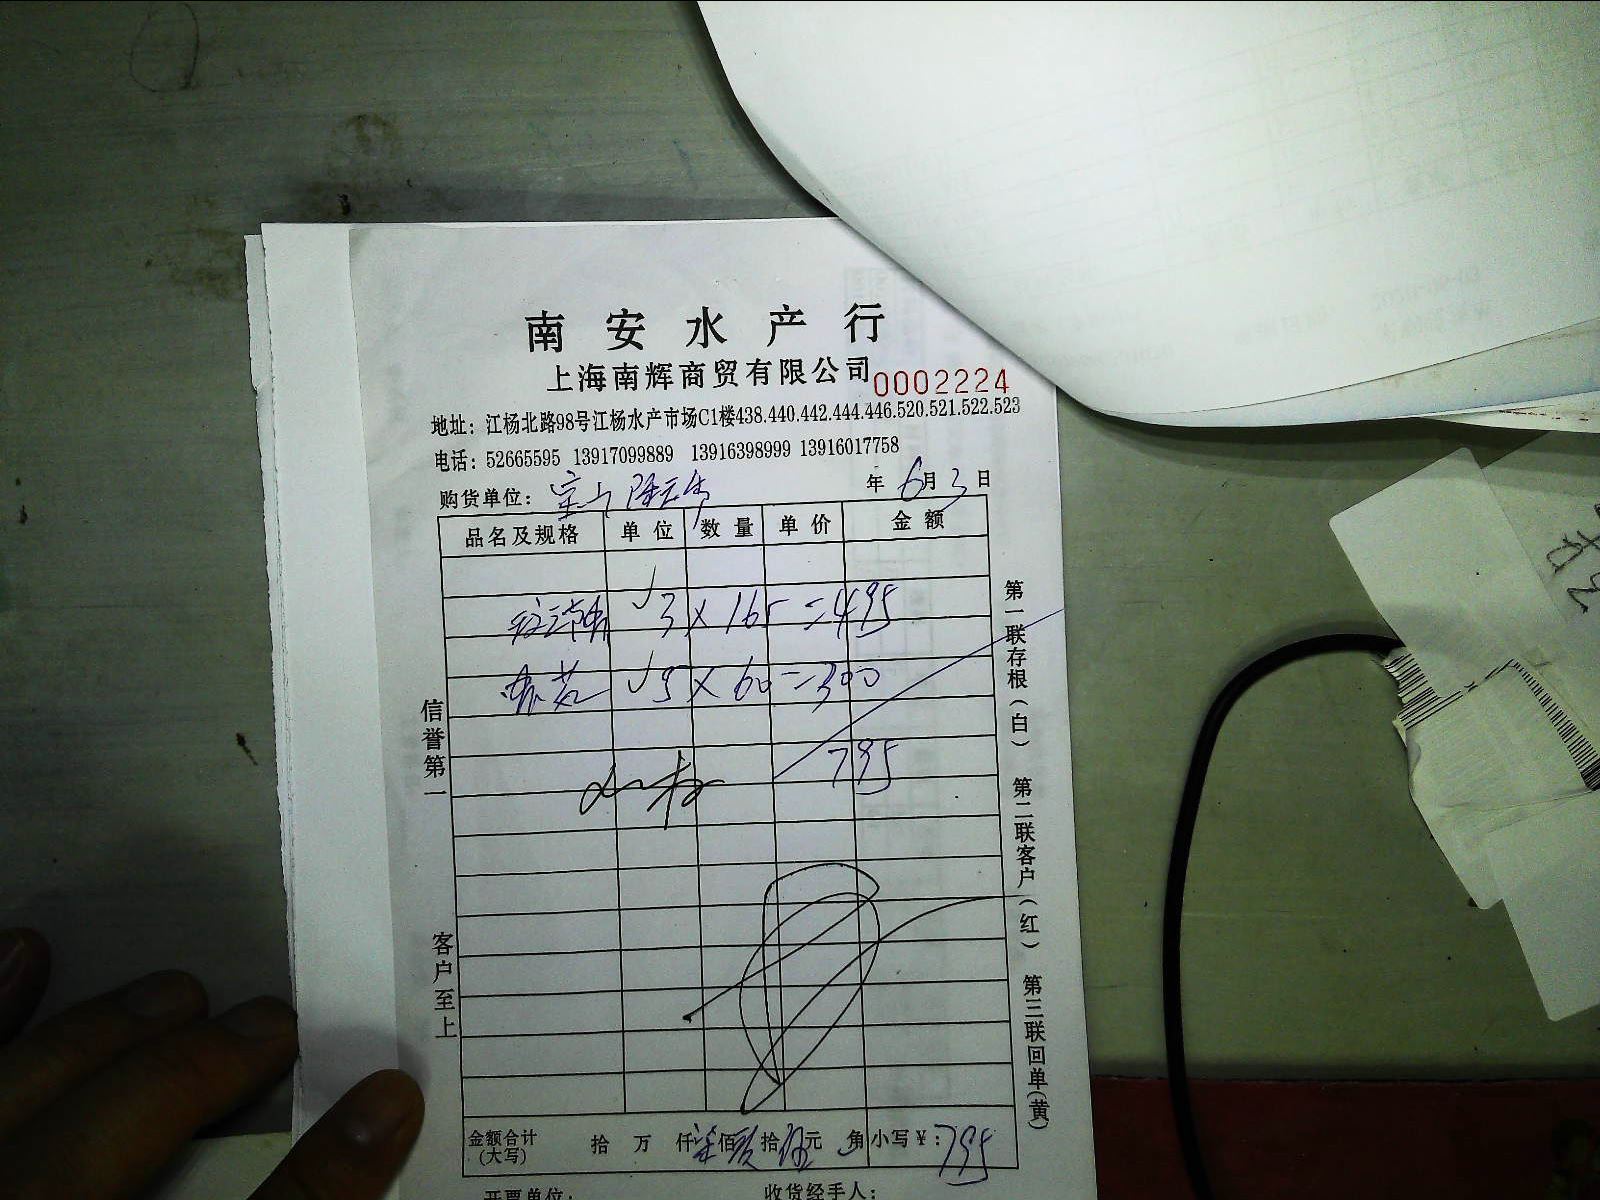 南安水产行
上海南辉商贸有限公司 0002224
地址：江杨北路98号江杨水产市场C1楼438.440.442.444.446.520.521.522.523
电话：52665595 13917099889 13916398999 13916017758
购货单位： 年6月3日
品名及规格 单位 数量 单价 金额
3×165=495
5×60=300
795
金额合计(大写) 拾 万 仟柒佰玖拾伍元 角 小写￥：795
开票单位： 收货经手人：
信誉第一
客户至上
第一联存根(白) 第二联客户(红) 第三联回单(黄)